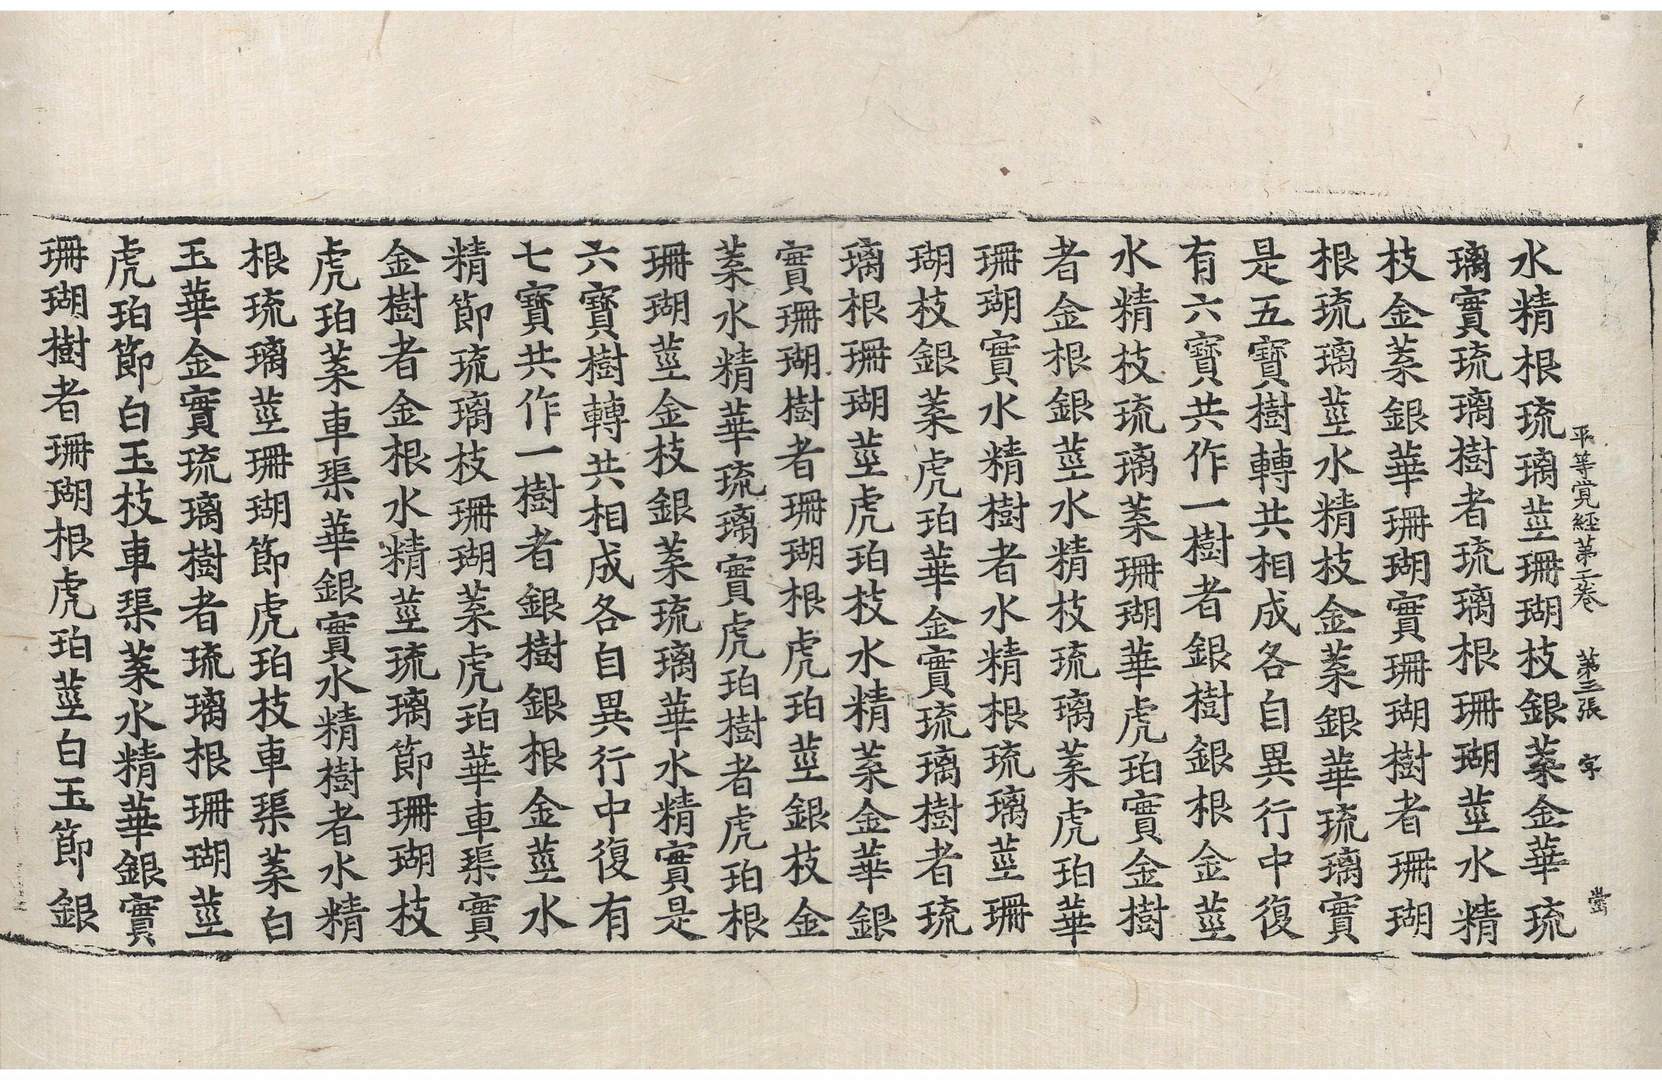 平等覺經第二卷 第三張 字
水精根琉璃莖珊瑚枝銀葉金華琉
璃實琉璃樹者琉璃根珊瑚莖水精
枝金葉銀華珊瑚實珊瑚樹者珊瑚
根琉璃莖水精枝金葉銀華琉璃實
是五寶樹轉共相成各自異行中復
有六寶共作一樹者銀樹銀根金莖
水精枝琉璃葉珊瑚華虎珀實金樹
者金根銀莖水精枝琉璃葉虎珀華
珊瑚實水精樹者水精根琉璃莖珊
瑚枝銀葉虎珀華金實琉璃樹者琉
璃根珊瑚莖虎珀枝水精葉金華銀
實珊瑚樹者珊瑚根虎珀莖銀枝金
葉水精華琉璃實虎珀樹者虎珀根
珊瑚莖金枝銀葉琉璃華水精實是
六寶樹轉共相成各自異行中復有
七寶共作一樹者銀樹銀根金莖水
精節琉璃枝珊瑚葉虎珀華車渠實
金樹者金根水精莖琉璃節珊瑚枝
虎珀葉車渠華銀實水精樹者水精
根琉璃莖珊瑚節虎珀枝車渠葉白
玉華金實琉璃樹者琉璃根珊瑚莖
虎珀節白玉枝車渠葉水精華銀實
珊瑚樹者珊瑚根虎珀莖白玉節銀